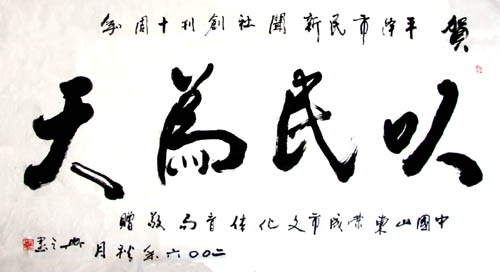 賀 平泽市民新聞社創刊十周年
以民為天
中國山東荣成市文化体育局敬贈
二〇〇六年秋月